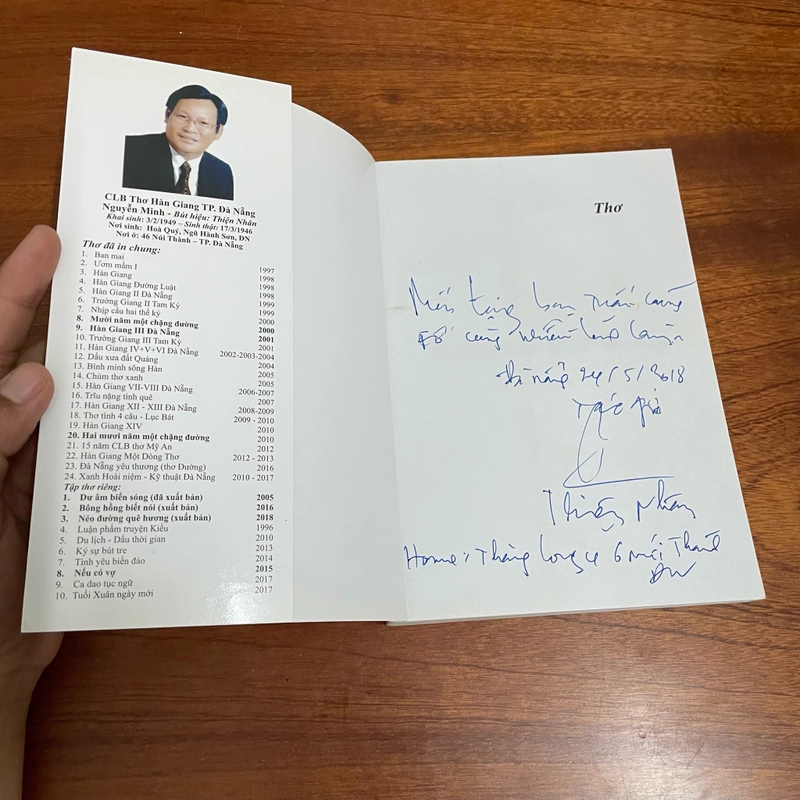 CLB Thơ Hàn Giang TP. Đà Nẵng
Nguyễn Minh - Bút hiệu: Thiện Nhân
Khai sinh: 3/2/1949 – Sinh thật: 17/3/1946
Nơi sinh: Hoà Quý, Ngũ Hành Sơn, ĐN
Nơi ở: 46 Núi Thành – TP. Đà Nẵng
Thơ đã in chung:
1. Ban mai 1997
2. Ươm mầm I 1998
3. Hàn Giang 1998
4. Hàn Giang Đường Luật 1998
5. Hàn Giang II Đà Nẵng 1999
6. Trường Giang II Tam Kỳ 1999
7. Nhịp cầu hai thế kỷ 2000
8. Mười năm một chặng đường 2000
9. Hàn Giang III Đà Nẵng 2001
10. Trường Giang III Tam Kỳ 2001
11. Hàn Giang IV+V+VI Đà Nẵng 2002-2003-2004
12. Dấu xưa đất Quảng 2004
13. Bình minh sông Hàn 2005
14. Chùm thơ xanh 2005
15. Hàn Giang VII-VIII Đà Nẵng 2006-2007
16. Trĩu nặng tình quê 2007
17. Hàn Giang XII - XIII Đà Nẵng 2008-2009
18. Thơ tình 4 câu - Lục Bát 2009 - 2010
19. Hàn Giang XIV 2010
20. Hai mươi năm một chặng đường 2010
21. 15 năm CLB thơ Mỹ An 2012
22. Hàn Giang Một Dòng Thơ 2012 - 2013
23. Đà Nẵng yêu thương (thơ Đường) 2016
24. Xanh Hoài niệm - Kỹ thuật Đà Nẵng 2010 - 2017
Tập thơ riêng:
1. Dư âm biển sóng (đã xuất bản) 2005
2. Bông hồng biết nói (xuất bản) 2016
3. Nẻo đường quê hương (xuất bản) 2018
4. Luận phẩm truyện Kiều 1996
5. Du lịch - Dấu thời gian 2010
6. Ký sự bút tre 2013
7. Tình yêu biển đảo 2014
8. Nếu có vợ 2015
9. Ca dao tục ngữ 2017
10. Tuổi Xuân ngày mới 2017
Thơ
Mến tặng bạn
Đà Nẵng 24/5/2018
Tác giả
Thiện Nhân